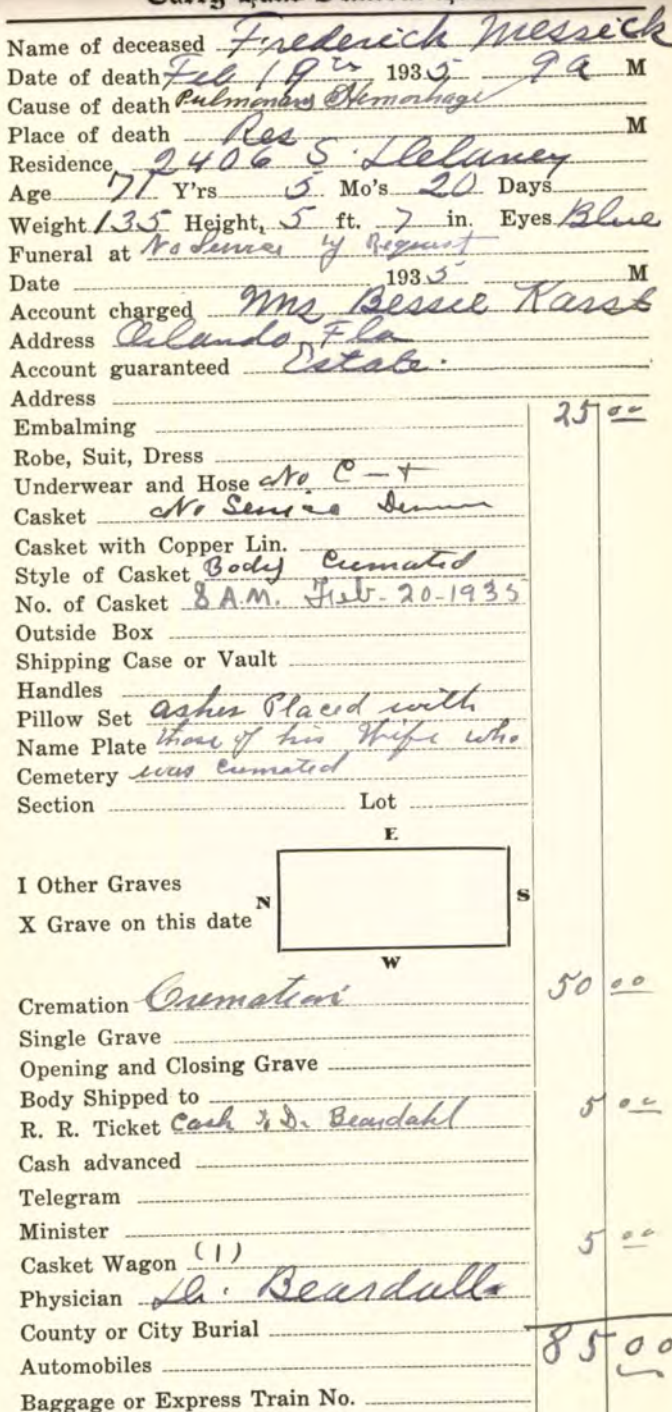 Name of deceased Frederick Messick
Date of death Feb 19 1935 9 a M
Cause of death Pulmonary Hemorhage
Place of death Res M
Residence 2406 S. Delaney
Age 71 Y'rs 5 Mo's 20 Days
Weight 135 Height, 5 ft. 7 in. Eyes Blue
Funeral at No Service by Request
Date 1935 M
Account charged Mrs Bessie Karst
Address Orlando Fla
Account guaranteed Estate.
Address
Embalming 25 00
Robe, Suit, Dress
Underwear and Hose No C - T
Casket No Service
Casket with Copper Lin.
Style of Casket Body Cremated
No. of Casket 8 A.M. Feb-20-1935
Outside Box
Shipping Case or Vault
Handles
Pillow Set ashes Placed with
Name Plate those of his Wife who
Cemetery was cremated
Section Lot
E
I Other Graves
N S
X Grave on this date
W
Cremation Cremation 50 00
Single Grave
Opening and Closing Grave
Body Shipped to
R. R. Ticket Cash Dr. Beardahl 5 00
Cash advanced
Telegram
Minister
Casket Wagon (1) 5 00
Physician Dr. Beardall
County or City Burial
Automobiles 85 00
Baggage or Express Train No.